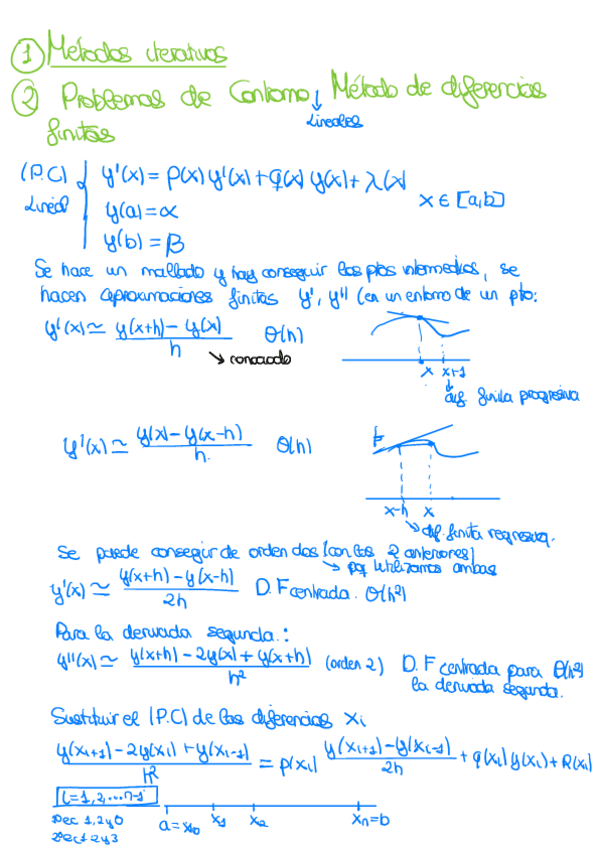 ① Métodos iterativos
② Problemas de Contorno, Método de diferencias
↓ Lineales
finitas
(P.C) { y'(x) = p(x) y'(x) + q(x) y(x) + λ(x)
Lineal y(a) = α x ∈ [a,b]
y(b) = β
Se hace un mallado y hay conseguir los ptos intermedios, se
hacen aproximaciones finitas y', y'' (en un entorno de un pto:
y'(x) ≃ (y(x+h) - y(x))/h θ(h)
↘ conocido
x x+1
↓
dif. finita progresiva
y'(x) ≃ (y(x) - y(x-h))/h. θ(h)
x-h x
↘ dif. finita regresiva.
Se puede conseguir de orden dos (con las 2 anteriores)
↘ pq utilizamos ambas
y'(x) ≃ (y(x+h) - y(x-h))/2h D.F centrada. θ(h²)
Para la derivada segunda.:
y''(x) ≃ (y(x+h) - 2y(x) + y(x+h))/h² (orden 2) D.F centrada para θ(h²)
la derivada segunda.
Sustituir el (P.C) de las diferencias xi
(y(xi+1) - 2y(xi) + y(xi-1))/h² = p(xi) (y(xi+1) - y(xi-1))/2h + q(xi) y(xi) + R(xi)
i=1,2,...n-1
a=x0 x1 x2 xn=b
1,2y0
1 2y3